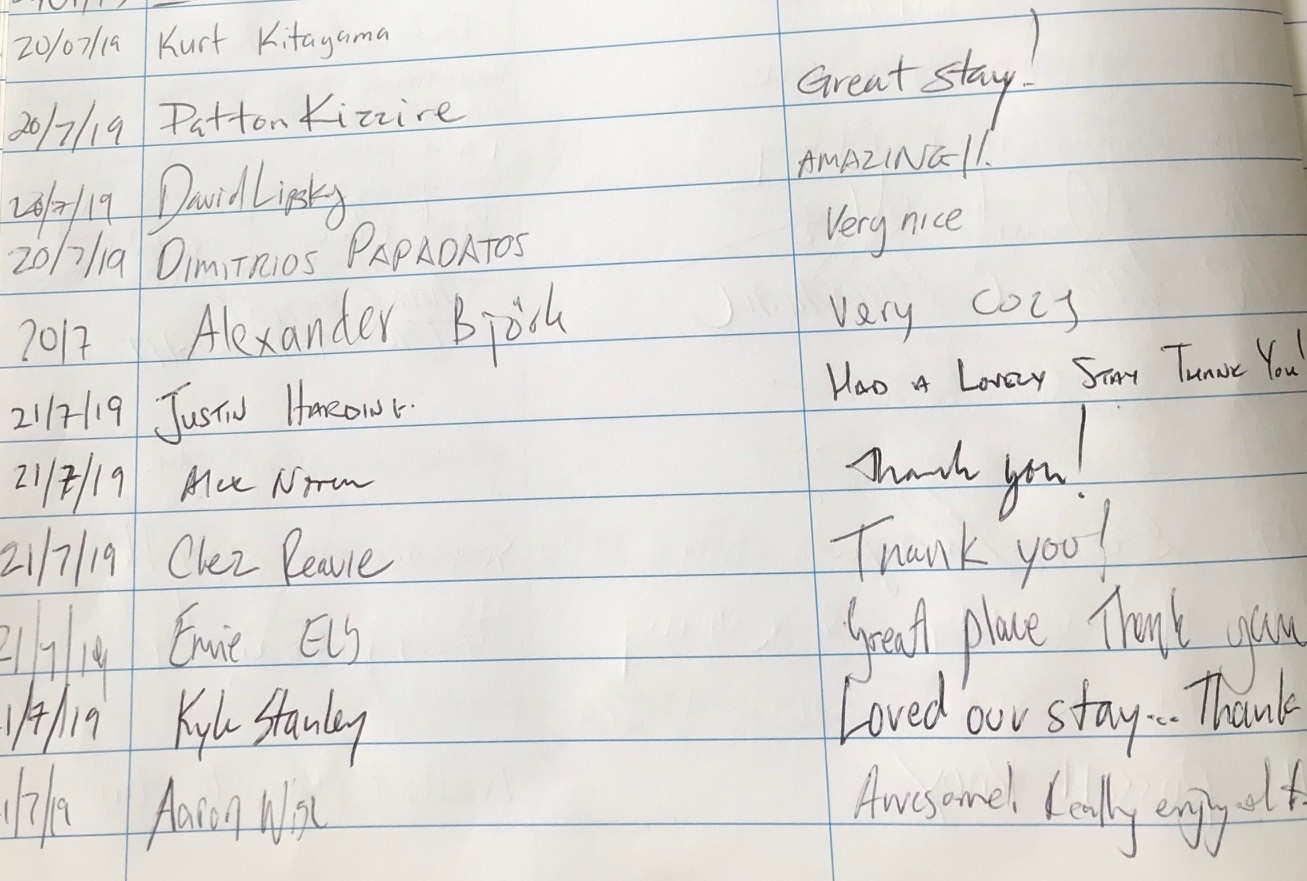 20/07/19 Kurt Kitayama
20/7/19 Patton Kizzire Great stay!
20/7/19 David Lipsky AMAZING!!
20/7/19 DIMITRIOS PAPADATOS Very nice
20/7 Alexander Björk Very cozy
21/7/19 JUSTIN HARDING. HAD A LOVELY STAY THANK YOU!
21/7/19 Alex Noren Thank you!
21/7/19 Chez Reavie Thank you!
21/7/19 Ernie Els Great place Thank you
1/7/19 Kyle Stanley Loved our stay... Thank
1/7/19 Aaron Wise Awesome! Really enjoyed